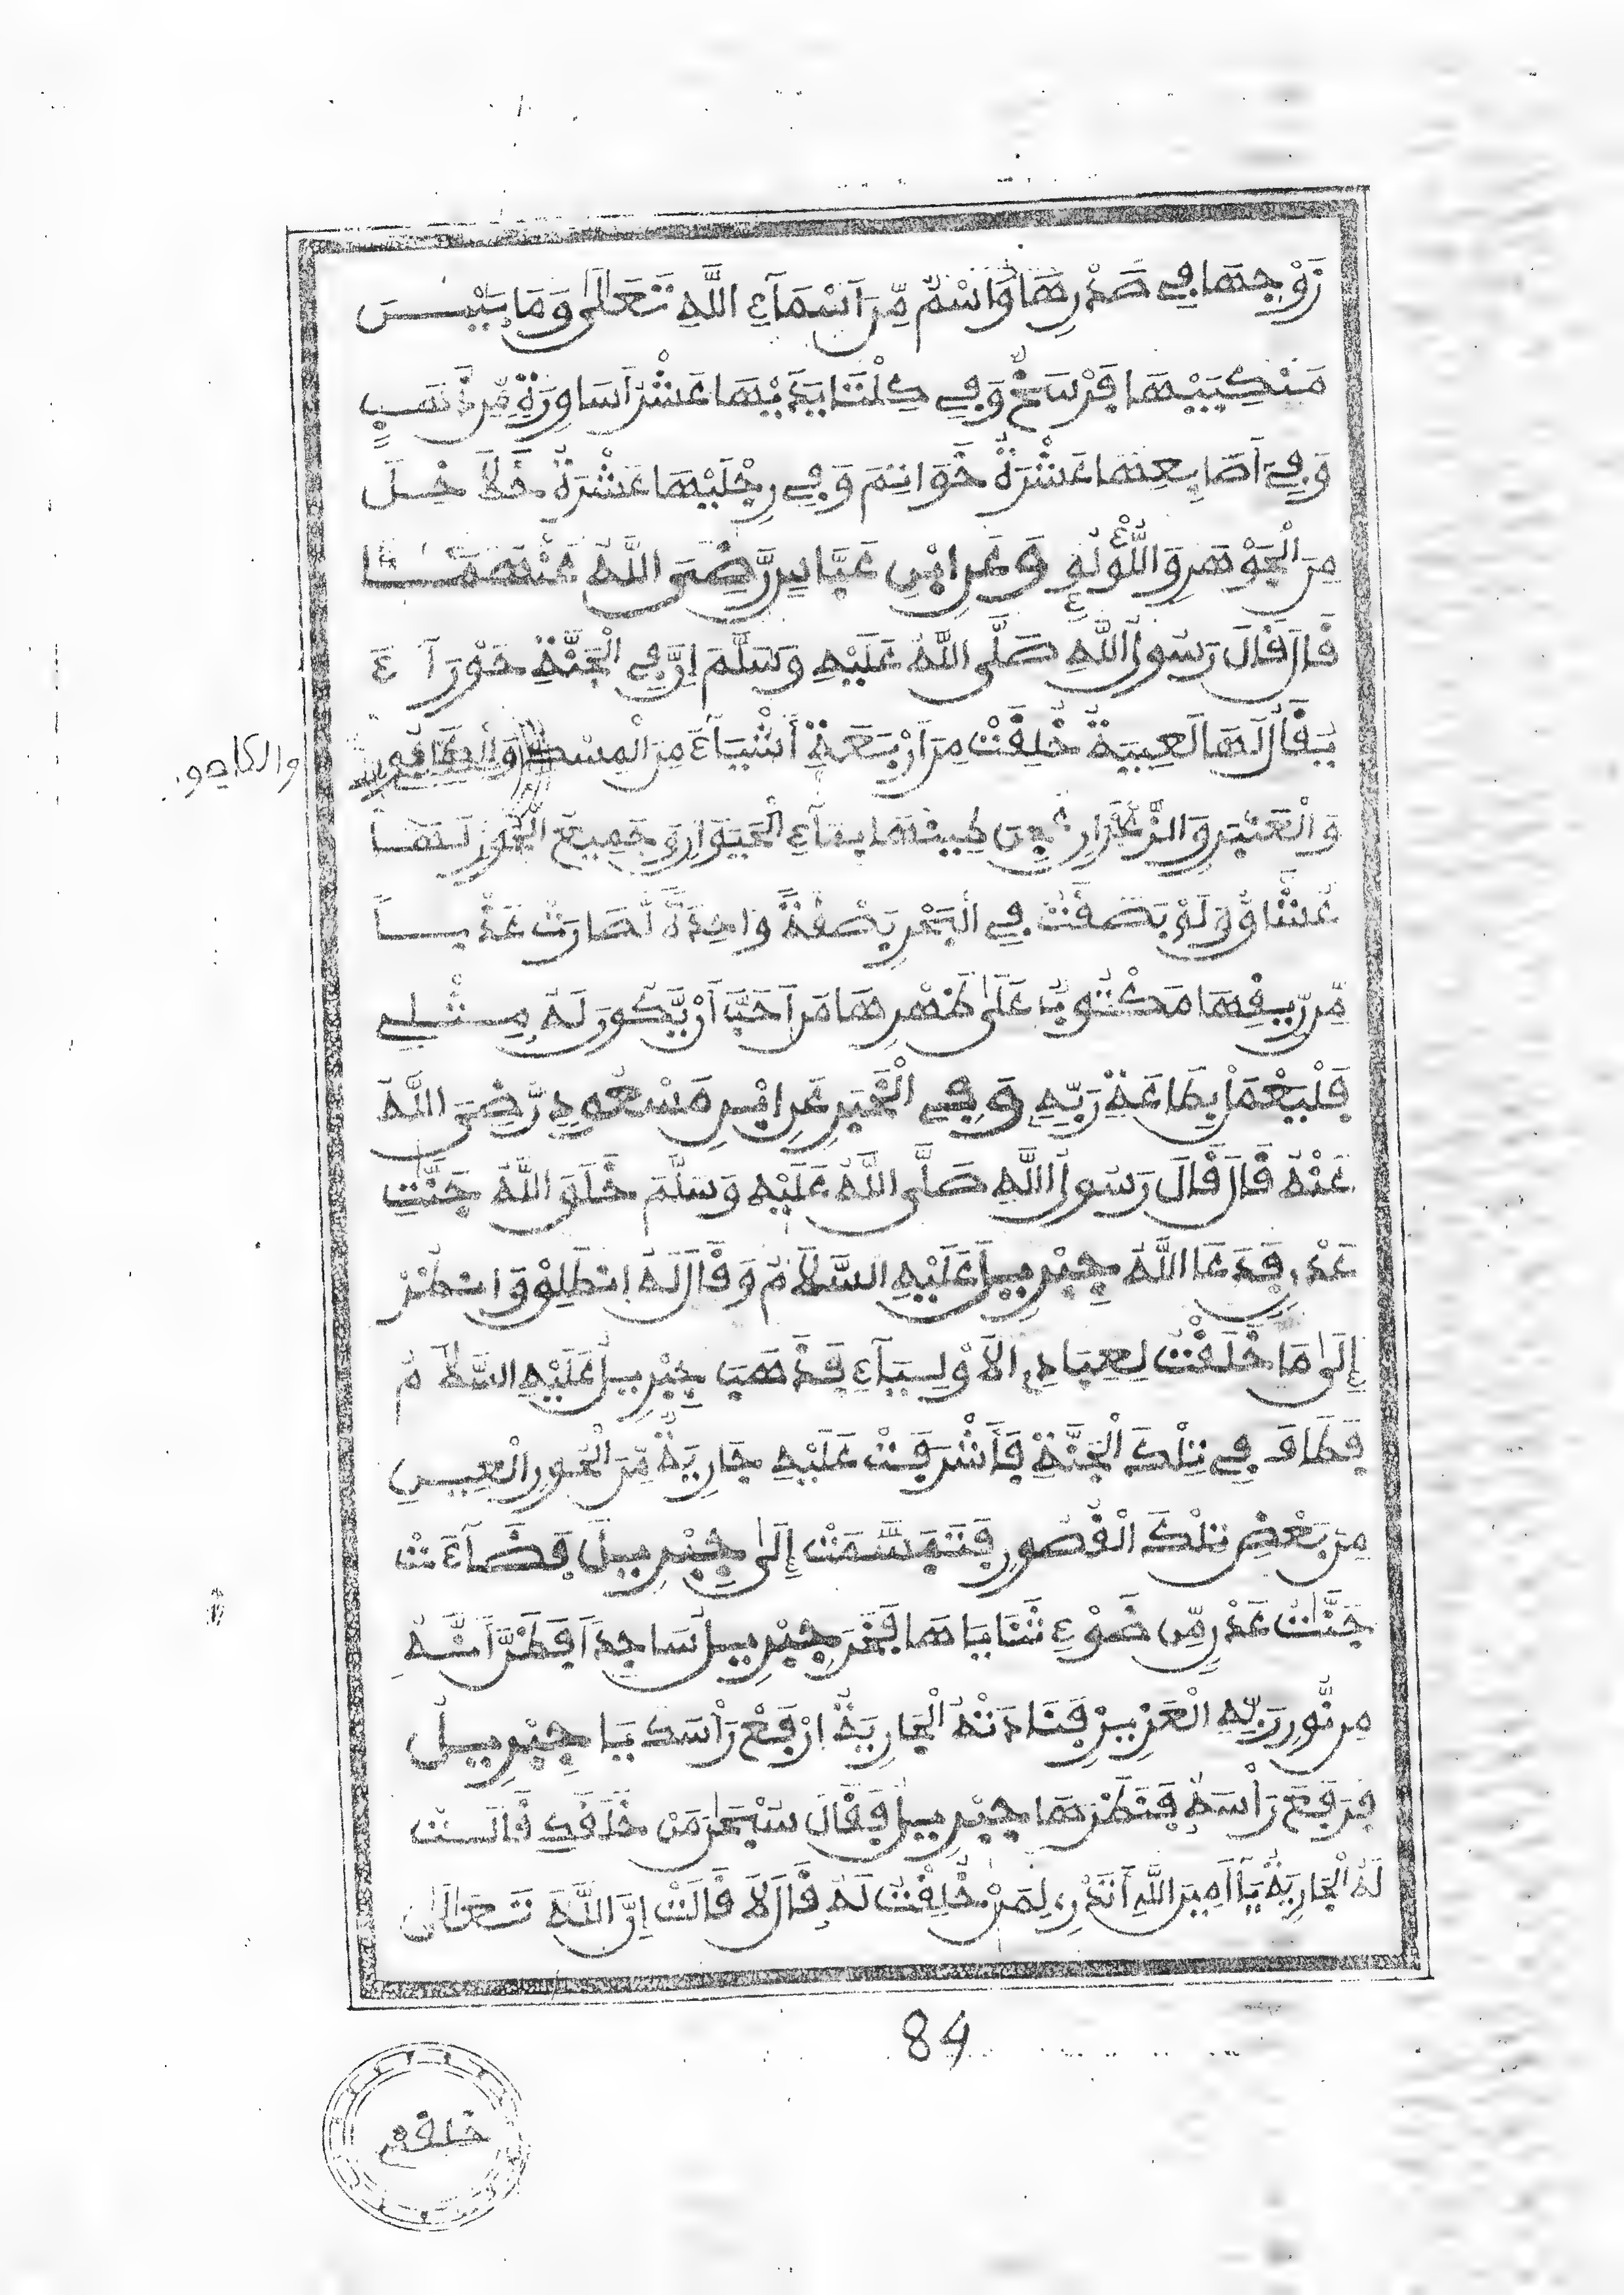 زَوْجِهَا فِي صَدْرِهَا وَاسْمٌ مِّنَ اَسْمَآءِ اللَّهِ تَعَالَىٰ وَمَا بَيْنَ
مَنْكِبَيْهَا فَرْسَخٌ وَفِي كِلْتَا يَدَيْهَا عَشْرُ اَسَاوِرَةٍ مِّن ذَهَبٍ
وَفِيٓ اَصَابِعِهَا عَشْرَةُ خَوَاتِمَ وَفِي رِجْلَيْهَا عَشْرَةُ خَلَاخِلَ
مِنَ الْجَوْهَرِ وَاللُّؤْلُؤِ وَعَنِ ابْنِ عَبَّاسٍ رَّضِيَ اللَّهُ عَنْهُمَا
قَالَ قَالَ رَسُولُ اللَّهِ صَلَّى اللَّهُ عَلَيْهِ وَسَلَّمَ إِنَّ فِي الْجَنَّةِ حَوْرَآءَ
يُقَالُ لَهَا لَعِيبَةٌ خُلِقَتْ مِنَ اَرْبَعَةِ أَشْيَآءَ مِنَ الْمِسْكِ وَالْكَافُورِ
والكافور
وَالْعَنْبَرِ وَالزَّعْفَرَانِ عُجِنَ طِينُهَا بِمَآءِ الْحَيَوَانِ وَجَمِيعُ الْحُورِ لَهَا
عُشَّاقٌ وَلَوْ بَصَقَتْ فِي الْبَحْرِ بَصْقَةً وَاحِدَةً لَّصَارَتْ عَذْباً
مِّن رِّيقِهَا مَكْتُوبٌ عَلَىٰ ظَهْرِهَا مَنَ اَحَبَّ أَنْ يَّكُونَ لَهُ مِثْلِي
فَلْيَعْمَلْ بِطَاعَةِ رَبِّهِ وَفِي الْخَبَرِ عَنِ ابْنِ مَسْعُودٍ رَّضِيَ اللَّهُ
عَنْهُ قَالَ قَالَ رَسُولُ اللَّهِ صَلَّى اللَّهُ عَلَيْهِ وَسَلَّمَ خَلَقَ اللَّهُ جَنَّٰتِ
عَدْنٍ فَدَعَا اللَّهُ جِبْرِيلَ عَلَيْهِ السَّلَامُ وَقَالَ لَهُ انْطَلِقْ وَانْظُرْ
إِلَىٰ مَا خَلَقْتُ لِعِبَادِي الَاوْلِيَآءِ فَذَهَبَ جِبْرِيلُ عَلَيْهِ السَّلَامُ
فَطَافَ فِي تِلْكَ الْجَنَّةِ فَأَشْرَفَتْ عَلَيْهِ جَارِيَةٌ مِّنَ الْحُورِ الْعِينِ
مِن بَعْضِ تِلْكَ الْقُصُورِ فَتَبَسَّمَتْ إِلَىٰ جِبْرِيلَ فَضَآءَتْ
جَنَّٰتُ عَدْنٍ مِّن ضَوْءِ ثَنَايَاهَا فَخَرَّ جِبْرِيلُ سَاجِداً فَظَنَّ أَنَّهُ
مِن نُّورِ رَبِّهِ الْعَزِيزِ فَنَادَتْهُ الْجَارِيَةُ ارْفَعْ رَأْسَكَ يَا جِبْرِيلُ
فَرَفَعَ رَأْسَهُ فَنَظَرَهَا جِبْرِيلُ فَقَالَ سُبْحَٰنَ مَنْ خَلَقَكِ قَالَتْ
لَهُ الْجَارِيَةُ يَآ أَمِينَ اللَّهِ أَتَدْرِي لِمَنْ خُلِقْتُ لَهُ قَالَ لَا قَالَتْ إِنَّ اللَّهَ تَعَالَىٰ
84